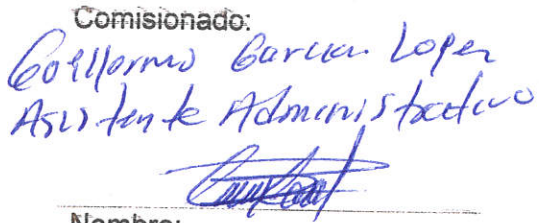 Comisionado:
Guillermo Garcia Lopez
Asistente Administrativo
Nombre: